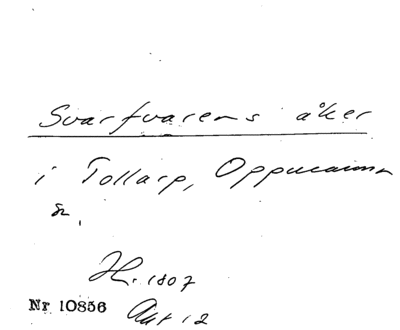 Svarfvarens åker
i Tollarp, Oppmanna
sn.
H. 1807
Nr 10856 Akt 12